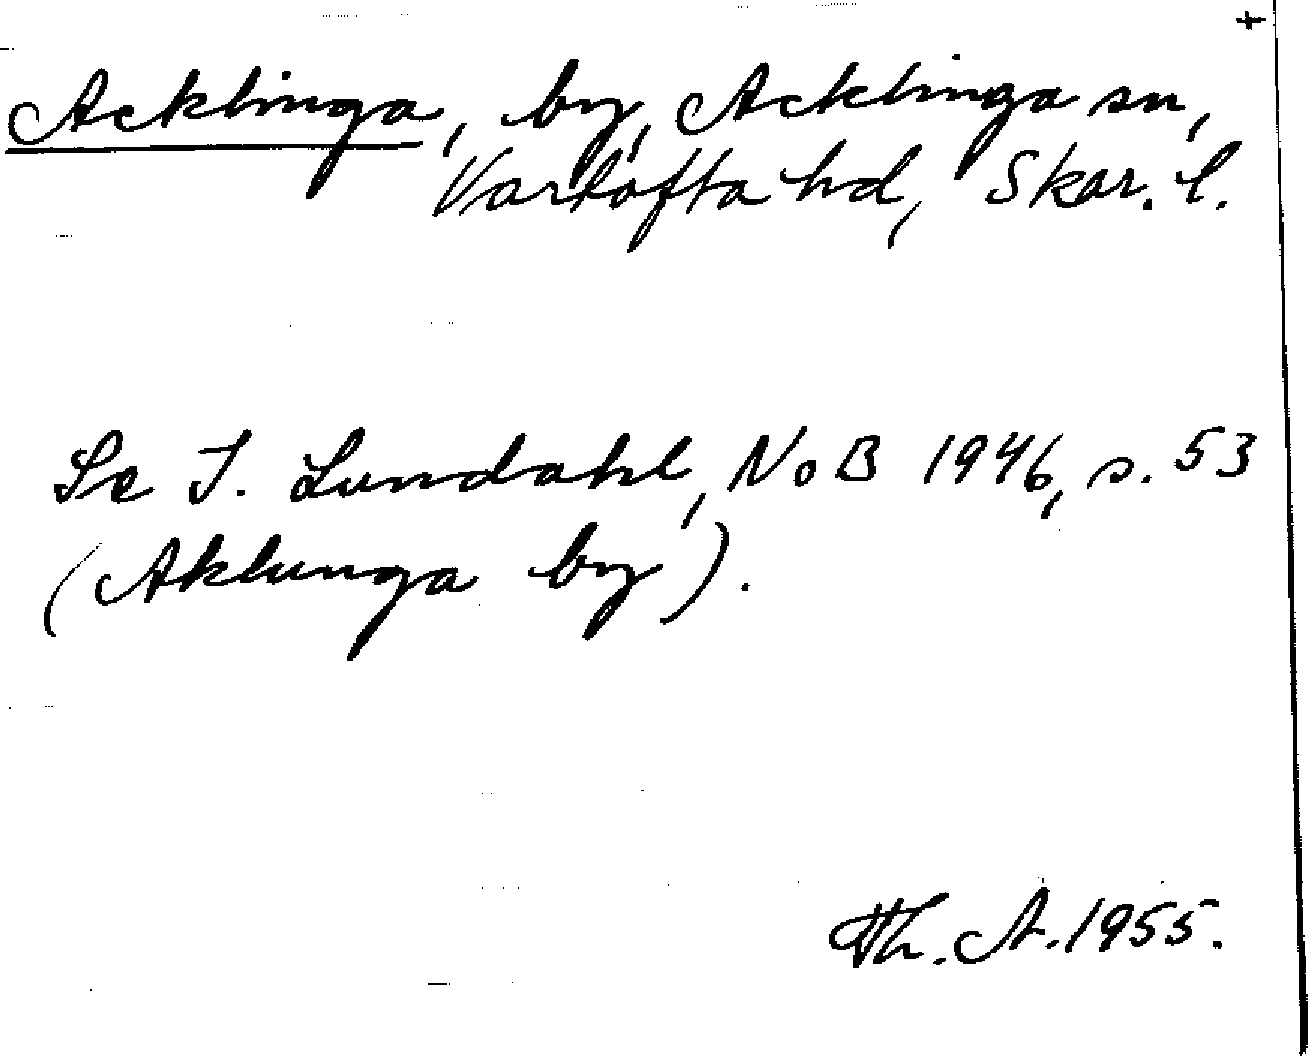 +
Acklinga, by, Acklinga sn,
Vartofta hd, Skar. l.
Se I. Lundahl, NoB 1946, s. 53
(Aklunga by).
Th. A. 1955.